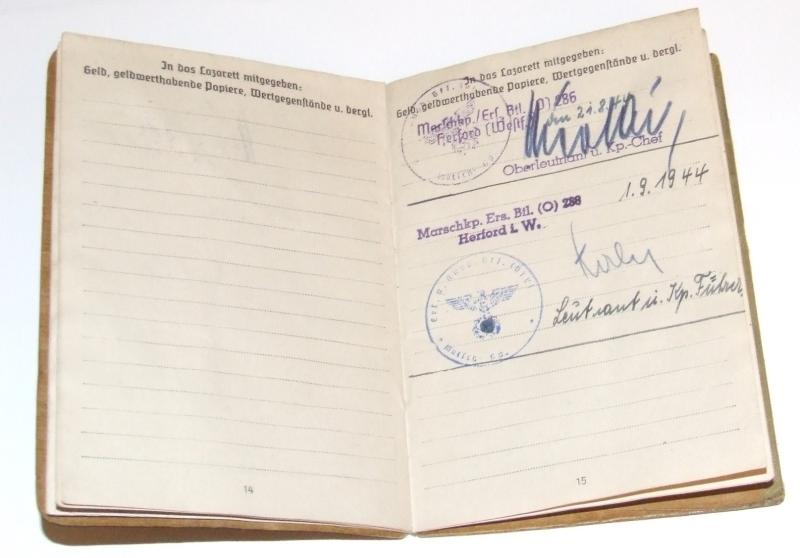 In das Lazarett mitgegeben:
Geld, geldwerthabende Papiere, Wertgegenstände u. dergl.
14
In das Lazarett mitgegeben:
Geld, geldwerthabende Papiere, Wertgegenstände u. dergl.
Marschkp./Ers. Btl. (O) 286
Herford (Westf.)
den 21.8.44
Oberleutnant u. Kp.-Chef
Marschkp. Ers. Btl. (O) 286
Herford i. W.
1.9.1944
Leutnant u. Kp. Führer
15